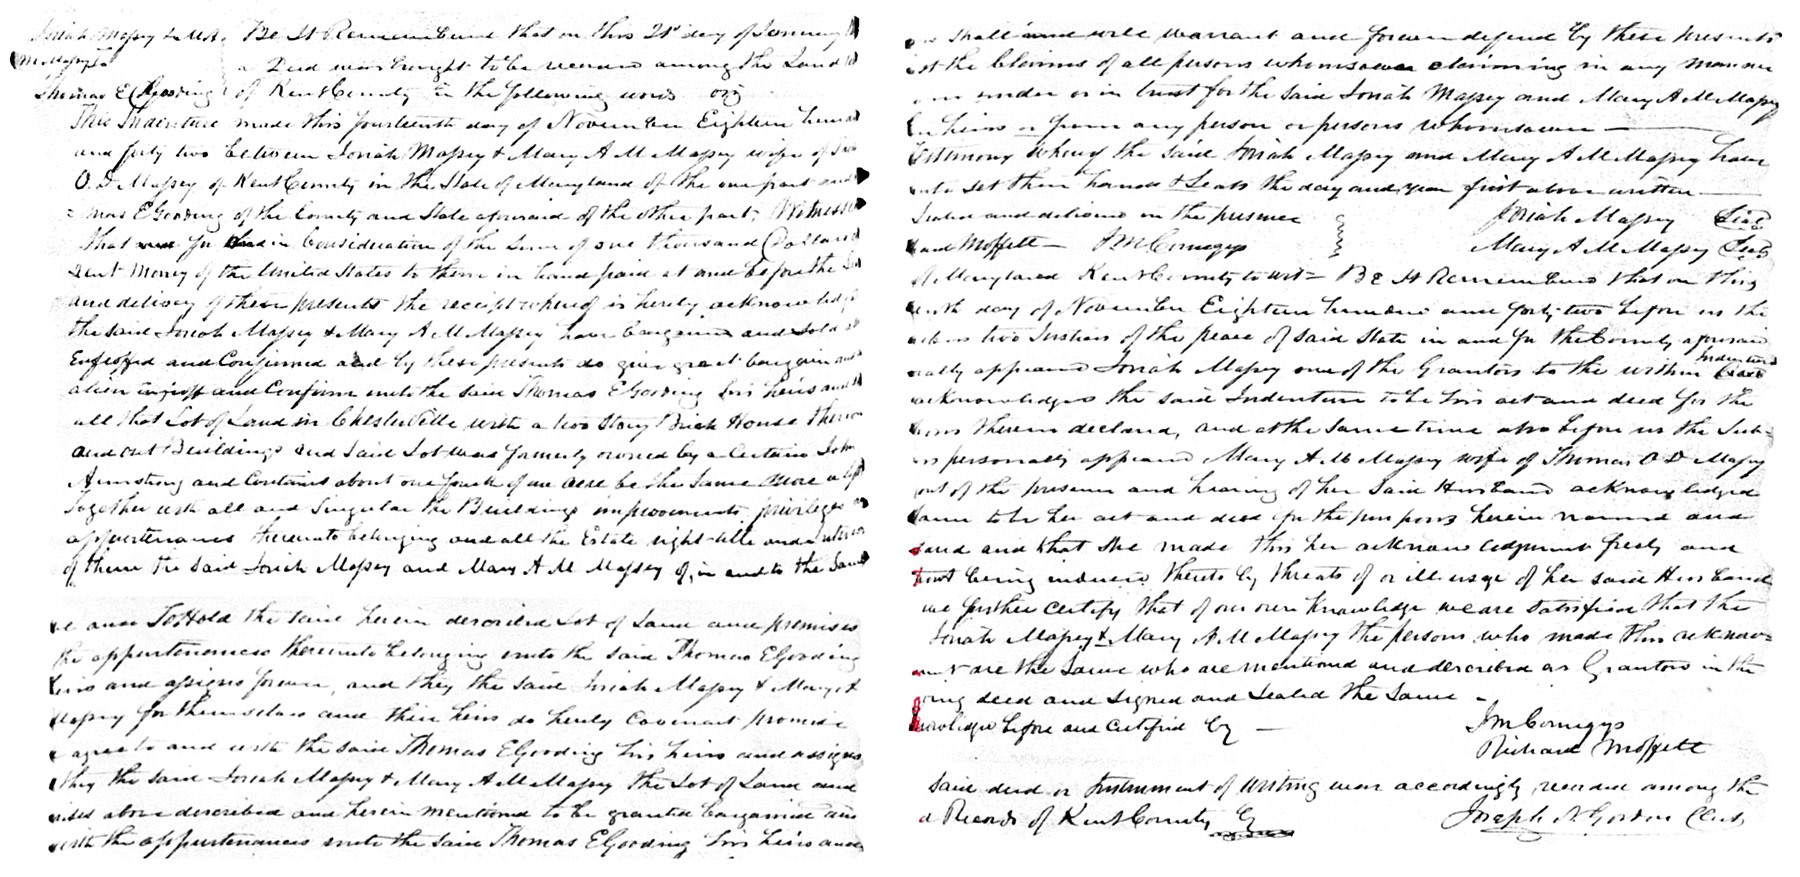 Josiah Massey & M A
M Massey to
Thomas E Gooding
Be It Remembered that on this 21st day of January
a Deed was brought to be recorded among the Land
of Kent County in the following words viz
This Indenture made this fourteenth day of November Eighteen hund
and forty two between Josiah Massey & Mary A M Massey wife of
O. D. Massey of Kent County in the State of Maryland of the one part and
mas E Gooding of the County and State aforesaid of the other part, Witnesse
that for and in Consideration of the Sum of one thousand Dollars
rent Money of the United States to them in hand paid at and before the
and delivery of these presents the receipt whereof is hereby acknowledge
the said Josiah Massey & Mary A M Massey have bargained and sold
Enfeoffed and Confirmed and by these presents do give grant bargain and
alien enfeoff and Confirm unto the said Thomas E Gooding his heirs and
all that Lot of Land in Chesterville with a two Story Brick House there
and out Buildings and Said Lot was formerly owned by a Certain John
Armstrong and Contains about one fourth of an acre be the Same More or
Together with all and Singular the Buildings improvements privileges
appurtenances thereunto belonging and all the Estate right title and
of them the said Josiah Massey and Mary A M Massey of, in and to the Same
ve and To Hold the same herein described Lot of Land and premises
the appurtenances thereunto belonging unto the said Thomas E Gooding
heirs and assigns forever, and they the said Josiah Massey & Mary A
Massey for themselves and their heirs do hereby Covenant promise
agree to and with the said Thomas E Gooding his heirs and assigns
they the said Josiah Massey & Mary A M Massey the Lot of Land and
above described and herein mentioned to be granted bargained and
with the appurtenances unto the said Thomas E Gooding his heirs and
shall and will warrant and forever defend by these presents
the Claims of all persons whomsoever claiming in any manner
under or in trust for the said Josiah Massey and Mary A M Massey
heirs or from any person or persons whomsoever
testimony whereof the said Josiah Massey and Mary A M Massey have
unto set their hands & Seals the day and year first above written
Sealed and delivered in the presence Josiah Massey Seal
Moffett J M Comegys Mary A M Massey Seal
of Maryland Kent County to wit = Be It Remembered that on this
day of November Eighteen hundred and forty two before us the
two Justices of the peace of said State in and for the County aforesaid
nally appeared Josiah Massey one of the Grantors to the within Indenture
acknowledges the said Indenture to be his act and deed for the
therein declared, and at the same time also before us the Sub=
personally appeared Mary A M Massey wife of Thomas O D Massey
out of the presence and hearing of her said Husband acknowledged
same to be her act and deed for the purposes herein named and
and that She made this her acknowledgment freely and
not being induced thereto by threats of or ill usage of her said Husband
we further certify that of our own Knowledge we are satisfied that the
Josiah Massey & Mary A M Massey the persons who made this acknow=
are the Same who are mentioned and described as Grantors in the
going deed and Signed and Sealed the Same -
nowledged before and certified by J M Comegys
Richard Moffett
said deed or Instrument of Writing was accordingly recorded among the
Records of Kent County By Joseph N Gordon Clerk